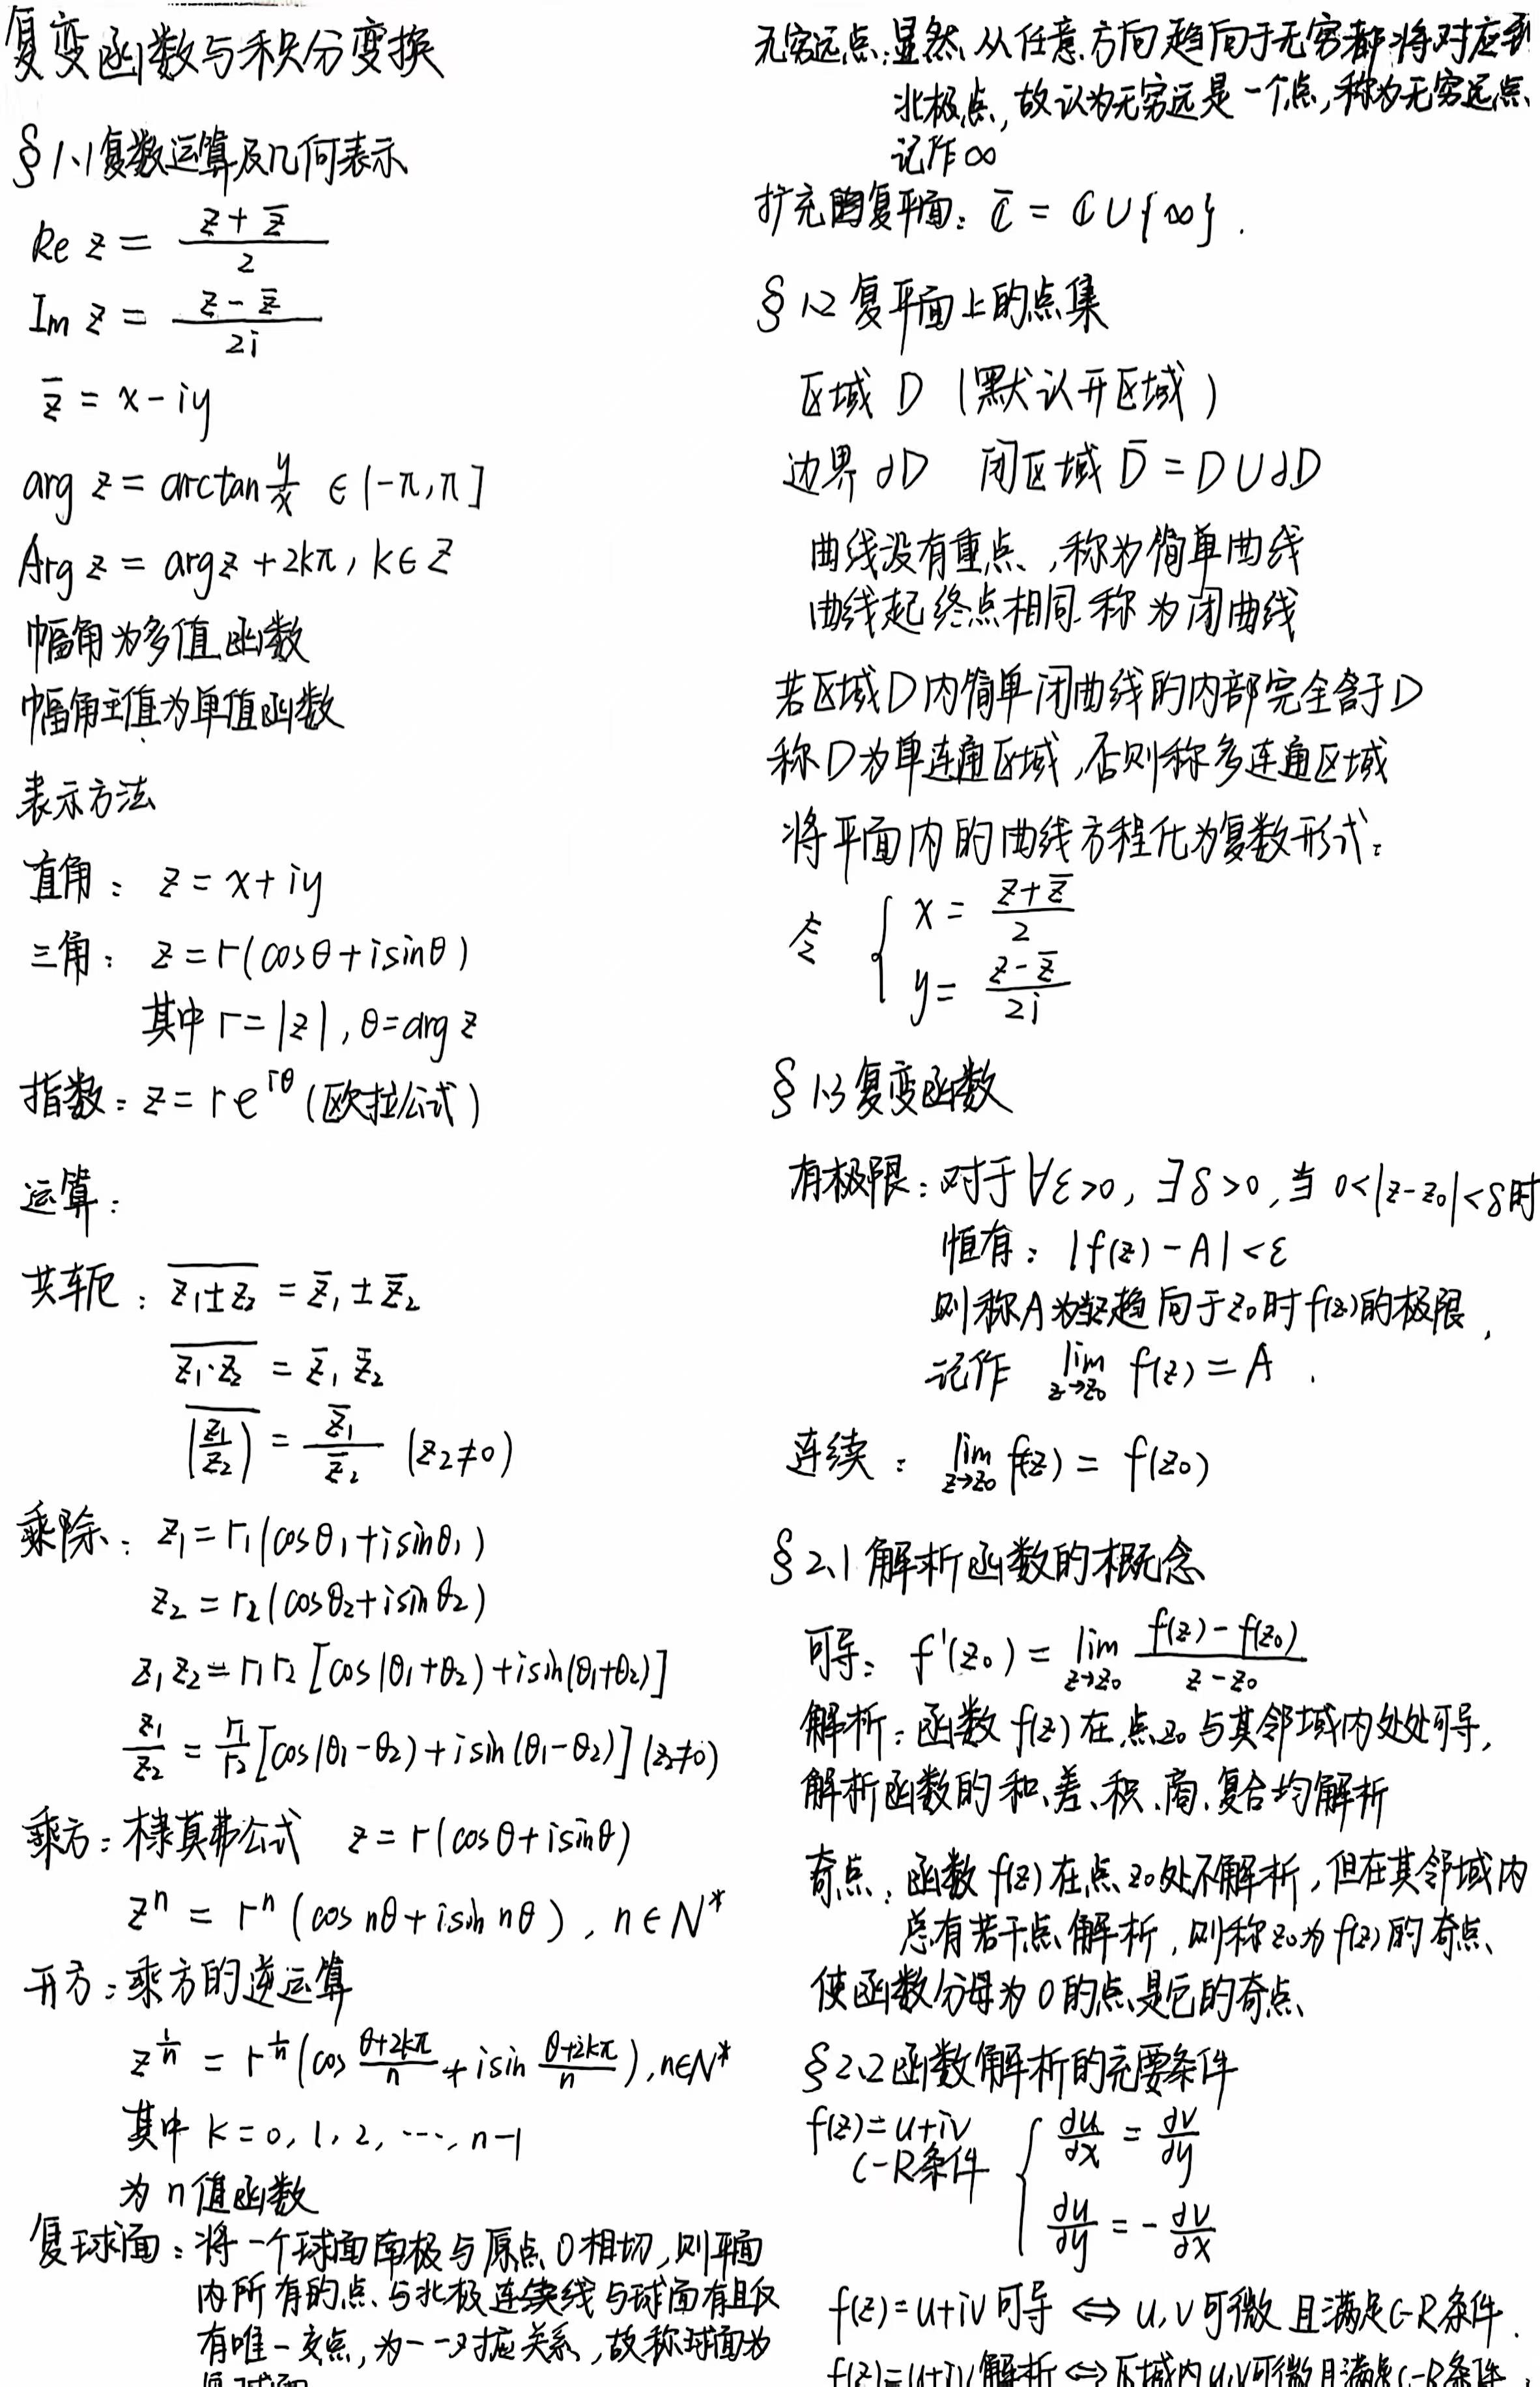 复变函数与积分变换
§1.1复数运算及几何表示
Re z = (z + z̄)/2
Im z = (z − z̄)/(2i)
z̄ = x − iy
arg z = arctan y/x ∈ (−π, π]
Arg z = arg z + 2kπ, k ∈ Z
幅角为多值函数
幅角主值为单值函数
表示方法
直角: z = x + iy
三角: z = r(cosθ + isinθ)
其中 r = |z|, θ = arg z
指数: z = re^{iθ} (欧拉公式)
运算:
共轭: \overline{z₁ ± z₂} = z̄₁ ± z̄₂
\overline{z₁·z₂} = z̄₁ z̄₂
\overline{(z₁/z₂)} = z̄₁/z̄₂ (z₂ ≠ 0)
乘除: z₁ = r₁(cosθ₁ + isinθ₁)
z₂ = r₂(cosθ₂ + isinθ₂)
z₁z₂ = r₁r₂[cos(θ₁+θ₂) + isin(θ₁+θ₂)]
z₁/z₂ = r₁/r₂[cos(θ₁−θ₂) + isin(θ₁−θ₂)] (z₂≠0)
乘方: 棣莫弗公式 z = r(cosθ + isinθ)
zⁿ = rⁿ(cos nθ + isin nθ), n ∈ N*
开方: 乘方的逆运算
z^{1/n} = r^{1/n}(cos (θ+2kπ)/n + isin (θ+2kπ)/n), n∈N*
其中 k = 0, 1, 2, ⋯, n−1
为 n 值函数
复球面: 将一个球面南极与原点O相切, 则平面
内所有的点与北极连线与球面有且仅
有唯一交点, 为一一对应关系, 故称球面为
复球面
无穷远点: 显然, 从任意方向趋向于无穷都将对应到
北极点, 故认为无穷远是一个点, 称为无穷远点
记作∞
扩充的复平面: C̄ = C∪{∞}.
§1.2 复平面上的点集
区域 D (默认开区域)
边界 ∂D 闭区域 D̄ = D∪∂D
曲线没有重点, 称为简单曲线
曲线起终点相同, 称为闭曲线
若区域D内简单闭曲线的内部完全含于D
称D为单连通区域, 否则称多连通区域
将平面内的曲线方程化为复数形式:
令 { x = (z + z̄)/2
y = (z − z̄)/(2i)
§1.3复变函数
有极限: 对于∀ε>0, ∃δ>0, 当 0<|z−z₀|<δ时
恒有: |f(z) − A| < ε
则称A为当z趋向于z₀时f(z)的极限,
记作 lim_{z→z₀} f(z) = A.
连续: lim_{z→z₀} f(z) = f(z₀)
§2.1 解析函数的概念
可导: f′(z₀) = lim_{z→z₀} (f(z) − f(z₀))/(z − z₀)
解析: 函数 f(z) 在点z₀与其邻域内处处可导,
解析函数的和、差、积、商、复合均解析
奇点: 函数 f(z)在点z₀处不解析, 但在其邻域内
总有若干点解析, 则称z₀为f(z)的奇点、
使函数分母为0的点是它的奇点、
§2.2函数解析的充要条件
f(z) = u+iv
C-R条件 { ∂u/∂x = ∂v/∂y
∂u/∂y = −∂v/∂x
f(z) = u+iv可导 ⇔ u,v可微且满足C-R条件.
f(z)=u+iv解析 ⇔ 区域内u,v可微且满足C-R条件.